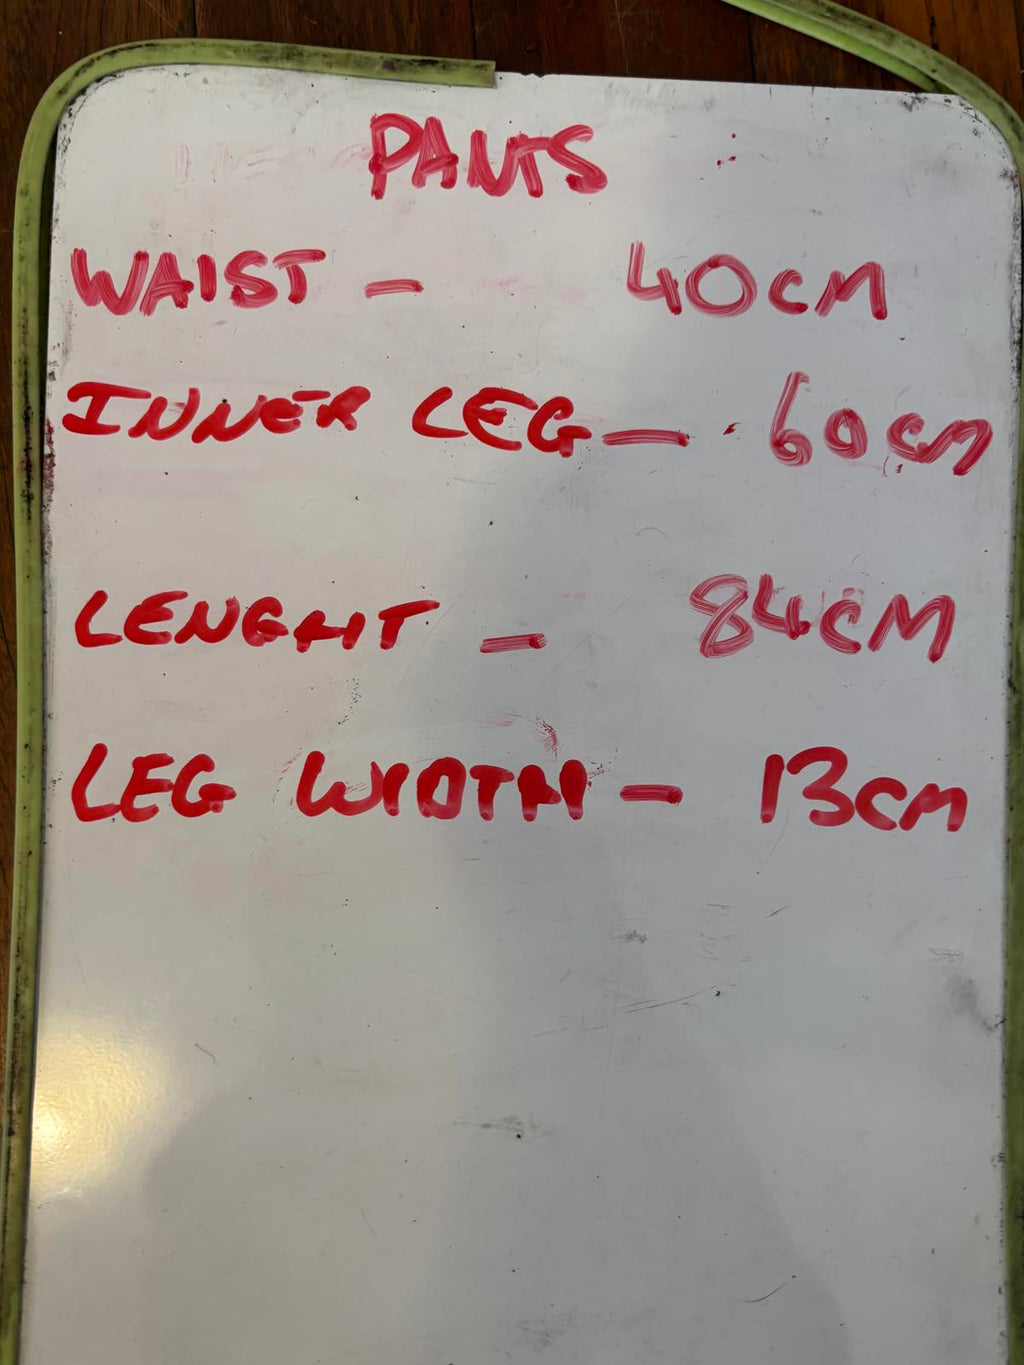 PANTS
WAIST - 40CM
INNER LEG - 60cm
LENGHT - 84CM
LEG WIDTH - 13cm